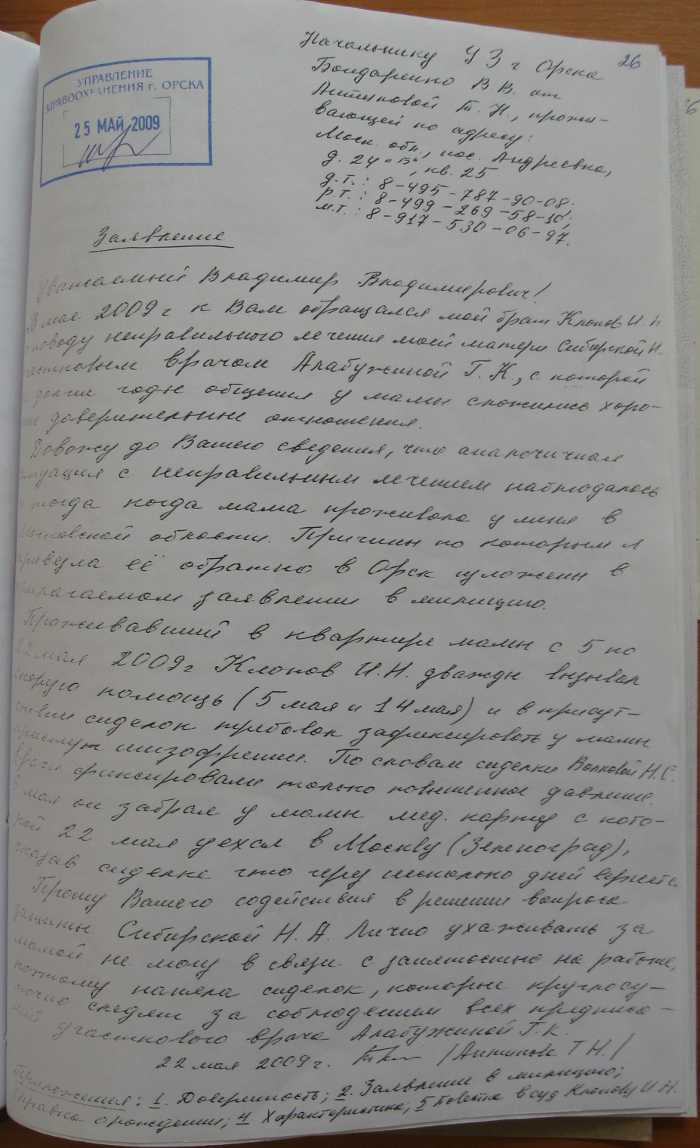 26
УПРАВЛЕНИЕ
ЗДРАВООХРАНЕНИЯ г. ОРСКА
25 МАЙ 2009
Начальнику УЗ г Орска
Бондаренко В В. от
Антиповой Т. Н., прожи-
вающей по адресу:
Моск. обл., пос. Андреевка,
д. 24 "В", кв. 25
д.т.: 8-495-787-90-08.
р.т.: 8-499-269-58-10,
м.т.: 8-917-530-06-97.
Заявление
Уважаемый Владимир Владимирович!
В мае 2009 г к Вам обращался мой брат Клопов И. Н
поводу неправильного лечения моей матери Сибирской Н.
участковым врачом Алабужиной Г. К, с которой
долгие годы общения у мамы сложились хоро-
доверительные отношения.
Довожу до Вашего сведения, что аналогичная
ситуация с неправильным лечением наблюдалось
тогда когда мама проживала у меня в
Московской области. Причины по которым я
привезла её обратно в Орск изложены в
прилагаемом заявлении в милицию.
Проживавший в квартире мамы с 5 по
22 мая 2009 г Клопов И.Н. дважды вызывал
скорую помощь (5 мая и 14 мая) и в присут-
ствии сиделок требовал зафиксировать у мамы
шизофрении. По словам сиделки Волковой Н.С.
врачи фиксировали только повышенное давление.
мая он забрал у мамы мед. карту с кото-
рой 22 мая уехал в Москву (Зеленоград),
сказав сиделке что через несколько дней вернется.
Прошу Вашего содействия в решении вопроса
защиты Сибирской Н. А. Лично ухаживать за
мамой не могу в связи с занятостью на работе,
поэтому наняла сиделок, которые круглосу-
точно следят за соблюдением всех предписа-
ний участкового врача Алабужиной Г.К.
22 мая 2009 г. /Антипова Т Н./
Приложения: 1. Доверенность; 2. Заявление в милицию;
справка о рождении; 4 Характеристика; 5 Повестка в суд Клопову И.Н.